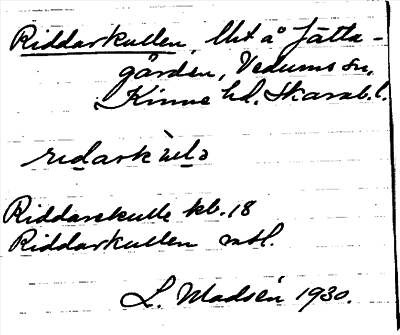 Riddarkullen, lht å Jätta-
gården, Vedums sn,
Kinne hd. Skarab. l.
Riddarekulle kb. 18
Riddarkullen mtl.
L. Madsén 1930.